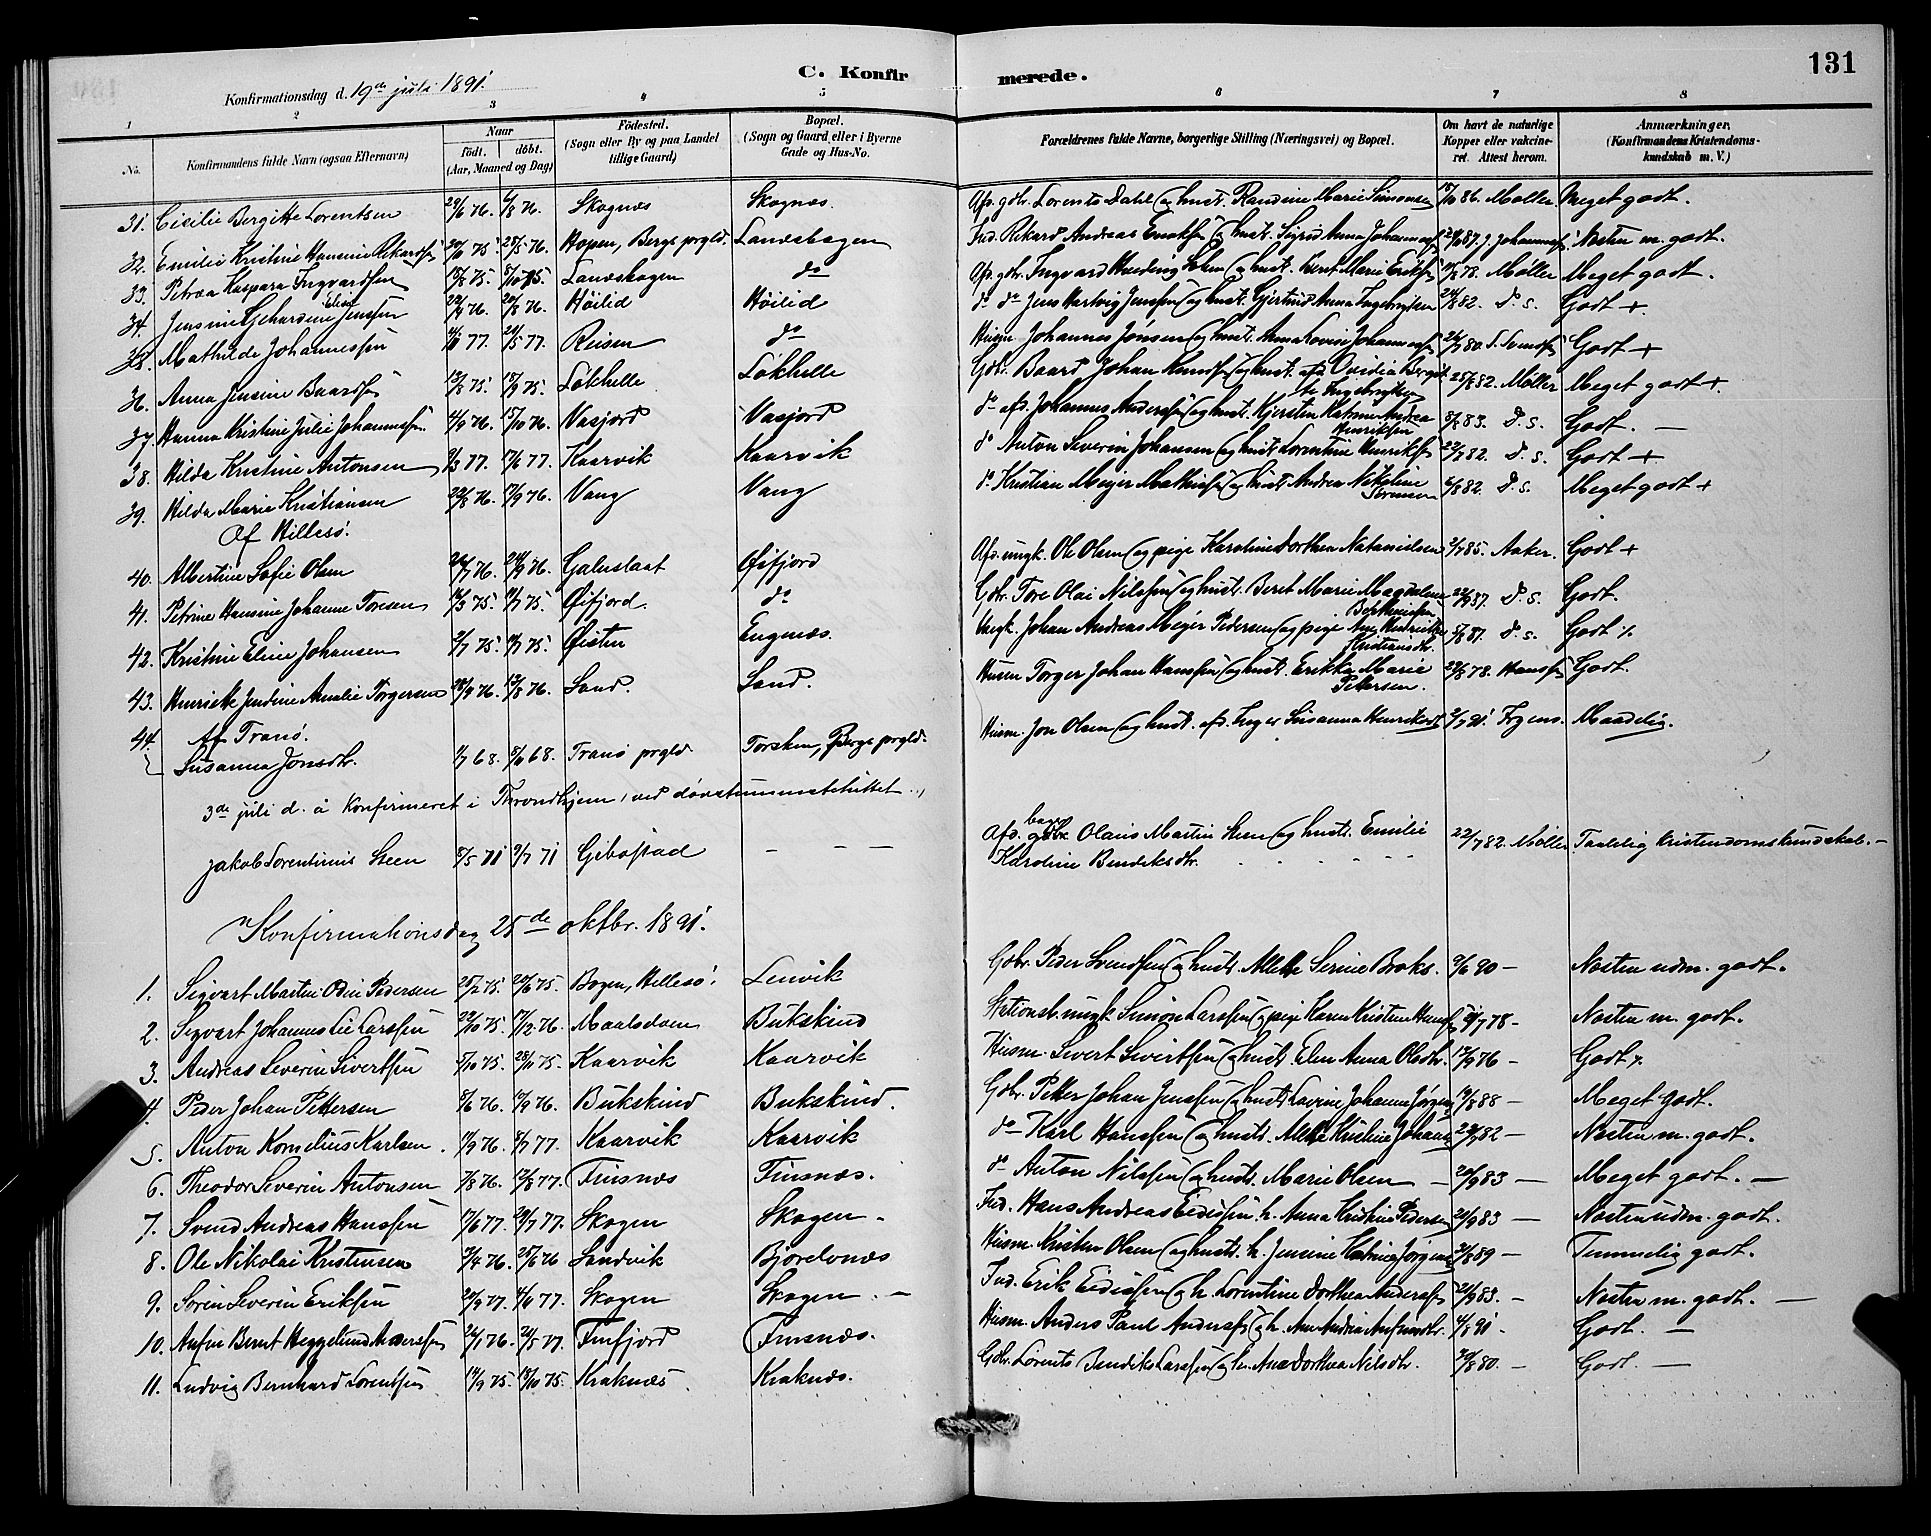 131
C. Konfirmerede.
Konfirmationsdag d. 19de juli 1891.
1 2 3 4 5 6 7 8
No. Konfirmandens fulde Navn (ogsaa Efternavn) Naar født. døbt. (Aar, Maaned og Dag) Fødested. (Sogn eller By og paa Landet tillige Gaard) Bopæl. (Sogn og Gaard, eller i Byerne Gade og Hus-No. Forældrenes fulde Navne, borgerlige Stilling (Næringsvei) og Bopæl. Om havt de naturlige Kopper eller vakcineret. Attest herom. Anmærkninger. (Konfirmandens Kristendomskundskab m. V.)
31. Cicilie Bergitte Lorentsen 29/6 76. 6/8 76. Skognæs Skognæs. Afd. gbr. Lorents Dahl og hust. Randine Marie Simonsen 86. Møller Meget godt.
32. Emilie Kristine Hansine Rikardsen 75. 28/5 76. Hopen, Bergs prgld. Landsbogen Ind. Rikard Andreas Enoksen og hust. Sigrid Anna 87. J. Johannesf. Næsten m. godt.
33. Petræa Kaspara Ingvardsen 75. 8/10 75. Landskogen do Afd. gbr. Ingvard og hust. Berit Marie Eriksf. 78. Møller Meget godt.
34. Jensine Gehardine Elise Jenssen 76. 20/8 76. Høilid Høilid do do Jens Hartvig Jenssen og hust. Gjertrud Anna Ingebrigtsen 82. D. s. Godt +.
35. Mathilde Johannessen 77. 21/5 77. Reisen do Husm. Johannes Jønsen og hust. Anna Lovise 80. Godt +
36. Anna Jensine Baardsen 75. 19/9 75. Løkhelle Løkhelle Gbr. Baard Johan Knudsen og hust. afd. Ovidia Bergitte Ingebrigtsen 25/8 82. Møller Meget godt +
37. Hanna Kristine Julie Johannessen 4/9 76. 15/10 76. Vasjord Vasjord do afd. Johannes Andersen og hust. Kjersten Katrine Andrea Henriksen 83. D. s. Godt. —
38. Hilda Kristine Antonsen 2/3 77. 17/6 77. Kaarvik Kaarvik do Anton Severin Johansen og hust. Lorentine Henriksf. 82. D. s. Godt +
39. Hilda Marie Kristiansen 22/8 76. 17/9 76. Vang Vang do Kristian Meijer Mathisen og hust. Andrea Nikoline Sørensen 82. D. s. Meget godt +
Af Hillesø.
40. Albertine Sofie Olsen 76. 24/9 76. Galnslaat Øifjord Afd. ungk. Ole Olsen og pige Karoline Dorthea Natanielsen 85. Aaker. Godt +
41. Petrine Hansine Johanne Toresen 75. 75. Øifjord. do Gbr. Tore Olai Nilssen og hust. Beret Marie Magdalena 87. D. s. Godt.
42. Kristine Eline Johansen 2/7 75. 75. Øisten Engenæs. Ungk. Johan Andreas Meijer Pedersen og pige Ane Kristiansdr. 87. D. s. Godt %
43. Henrikke Jentine Amalie Torgersen 76. 76. Sand. Sand. Husm Torger Johan Hanssen og hust. Erikka Marie Pettersen. 78. Hanssen Godt.
44. Af Tranø.
Susanna Jonsdtr. 68. 68. Tranø prgld. Torsken, Bergs prgld. Husm. Jon Olsen og hust. afd. Inger Susanna Henriksdr 91. Irgens. Maadelig.
3de juli d. å konfirmeret i Throndhjem, ved døvstummeinstituttet,
Jakob Lorentinus Steen 8/5 71 9/7 71 Gibostad — — — Afd. Olaus Martin Steen og hust. Emilie Karoline Bendiksdtr. 22/7 82. Møller Taalelig kristendomskundskab. —
Konfirmationsdag 25de oktbr. 1891.
1. Sigvart Martin Odin Pedersen 28/2 75. 20/6 75. Bogen, Hillesø. Lenvik Gbr. Peder Svendsen og hust. Mette Serine Broks. 9/6 90 — Næsten udm. godt.
2. Sigvart Johannes Lie Larssen 22/10 75. 17/12 76. Maalsdalen Bukskind ungk. Simon Larssen og pige Karen Kristine 78 — Næsten m. godt.
3. Andreas Severin Sivertsen 5/10 75. 28/11 75. Kaarvik Kaarvik Husm. Sivert Sivertsen og hust. Elen Anna Olsdtr. 17/9 76 — Godt %
4. Peder Johan Pettersen 8/6 76. 17/9 76. Bukskind Bukskind. Gbr. Petter Johan Jenssen og hust. Lavine Johanna 88 — Meget godt.
5. Anton Kornelius Karlsen. 76. 8/7 77. Kaarvik Kaarvik do Karl Hanssen og hust. Mette Kristine 82 — Næsten m. godt.
6. Theodor Severin Antonsen 7/8 76. 77. Finsnæs Finsnæs. do Anton Nilssen og hust. Marie Olsen — 20/9 83 — Meget godt. —
7. Svend Andreas Hanssen 17/6 77. 29/7 77. Skogen Skogen. Ind. Hans Andreas Eidissen h. Anna Kristine Pedersen 20/9 83 — Næsten udm. godt.
8. Ole Nikolai Kristensen 9/4 76. 25/6 76 Sandvik Bjorelvnæs Husm. Kristen Olsen og hust. h. Jensine Katrine 89 — Temmelig godt.
9. Søren Severin Eriksen 77. 77. Skogen Skogen. — Ind. Erik Eidissen og h. Lorentine Dorthea Andersf 20/9 83. — Næsten m. godt. —
10. Anfin Bernt Heggelund Andersen 76. 77. Finfjord Finsnæs. Husm. Anders Paul Andersf og h. Ane Andrea 4/8 91. Godt. —
11. Ludvig Bernhard Lorentsen 14/9 75. 75. Kraknæs Kraknæs. Gbr. Lorents Bendiks Larssen og h. Ane Dorthea Nilsdtr. 80. — Godt. —